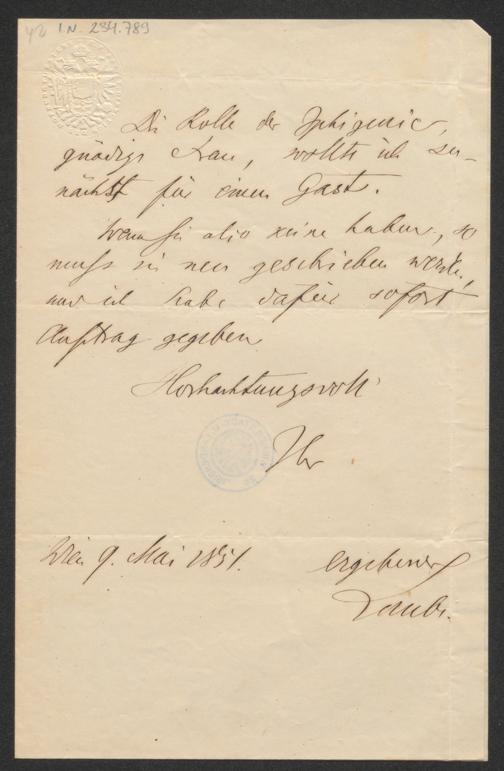 I.N. 234.789
Die Rolle der Iphigenie,
gnädige Frau, wollte ich zu-
nächst für einen Gast.
Wenn Sie also keine haben, so
muß sie neu geschrieben werden,
und ich habe dafür sofort
Auftrag gegeben
Hochachtungsvoll
Ihr
Wien 9. Mai 1851.
ergebener
Laube.